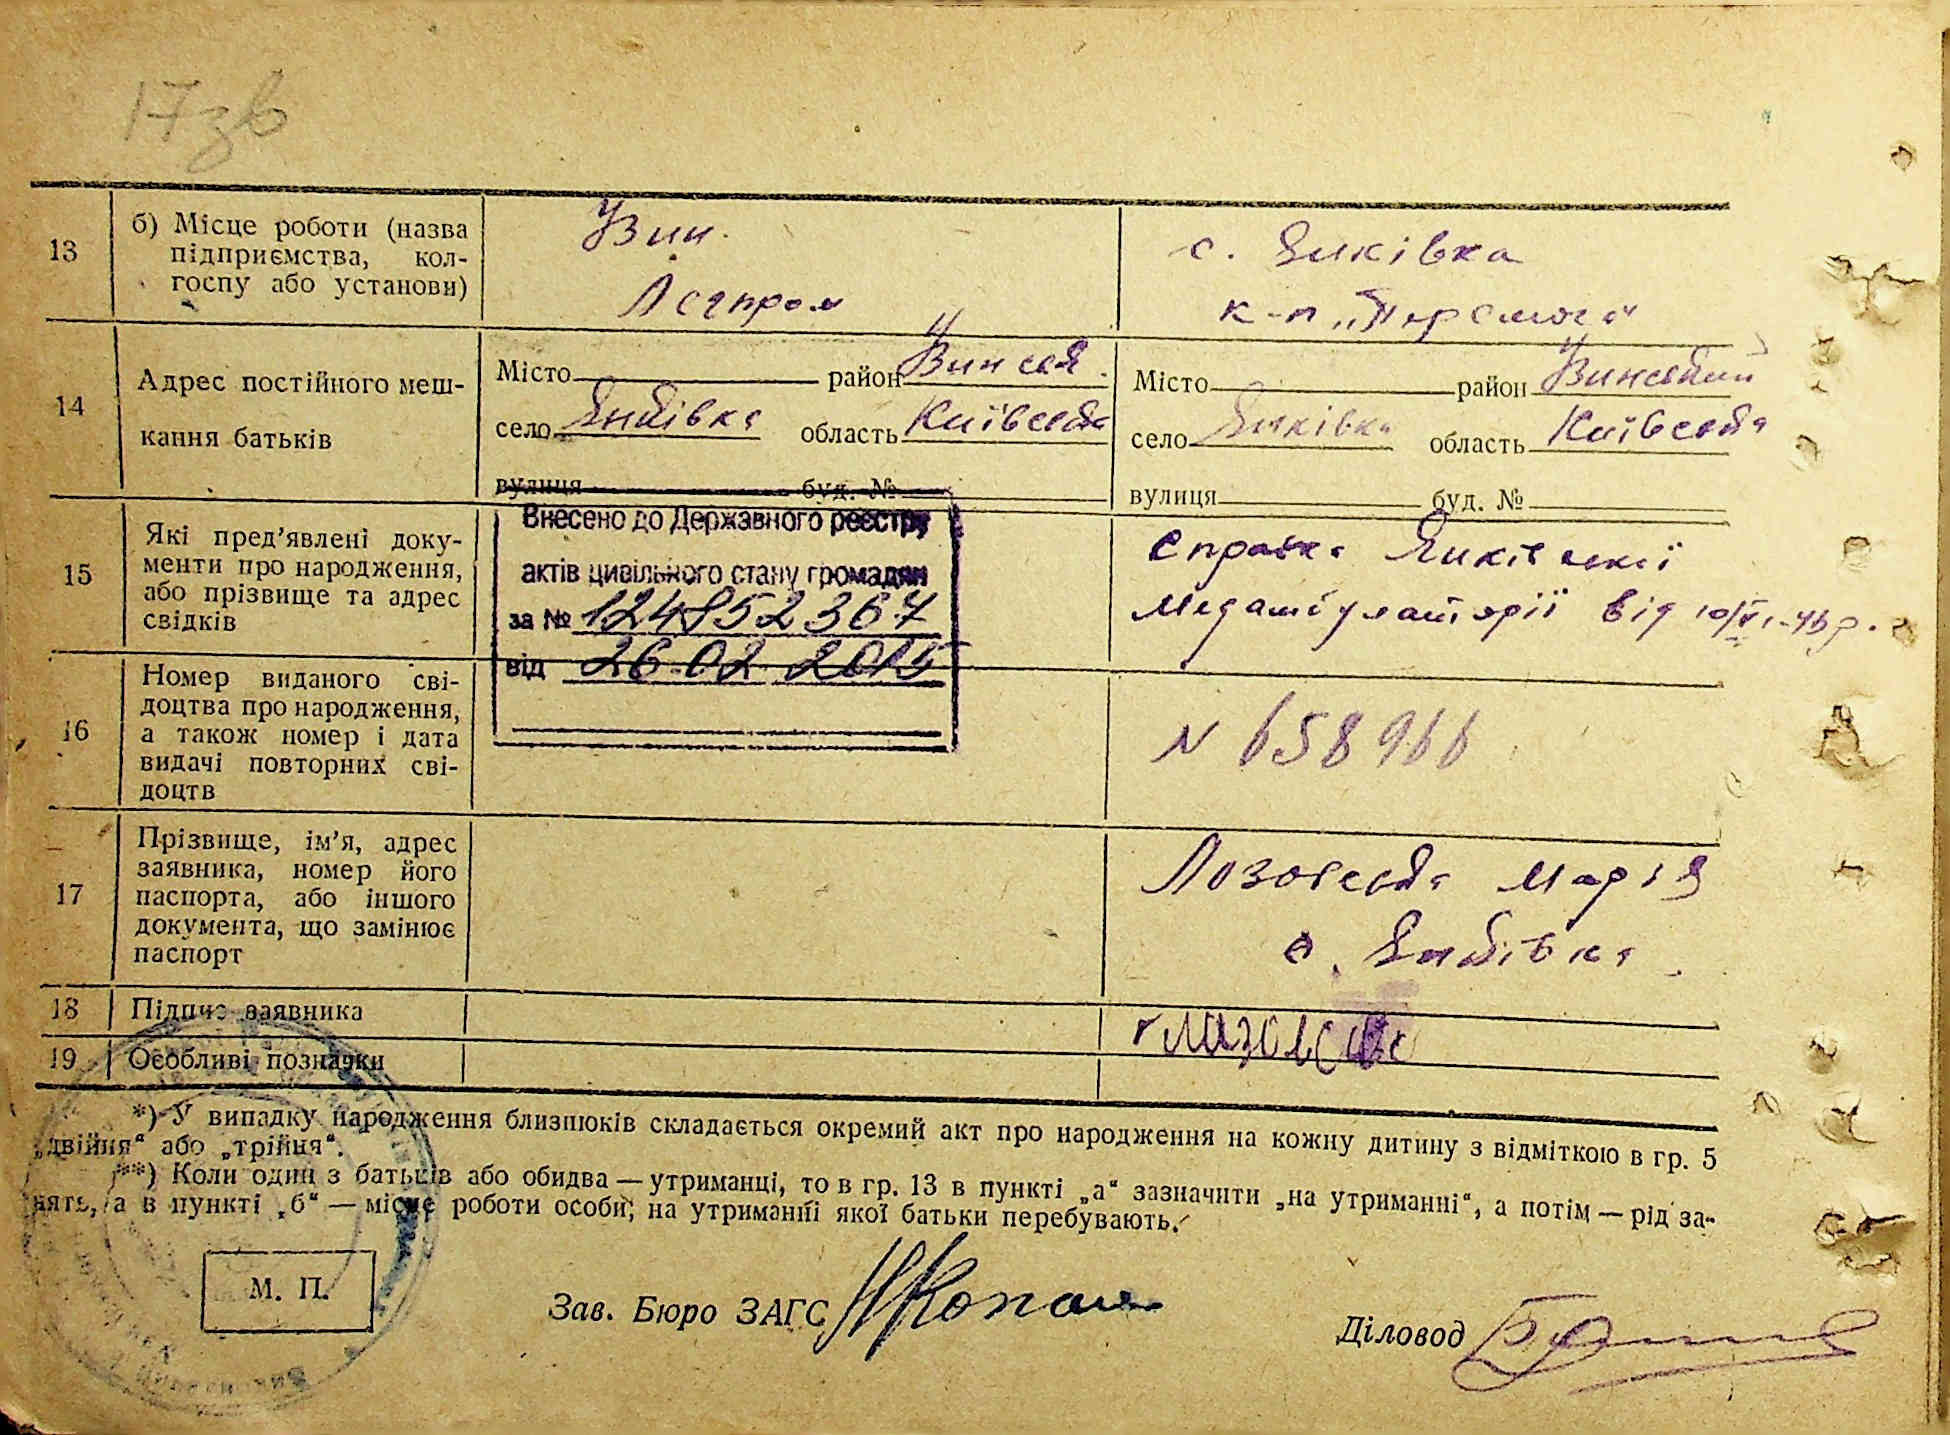 17зв
13
б) Місце роботи (назва
підприємства, кол-
госпу або установи)
с. Янківка
к-п „Перемога"
14
Адрес постійного меш-
кання батьків
Місто район
село Янківка область Київська
вулиця буд. №
Місто район
село Янківка область Київська
вулиця буд. №
Внесено до Державного реєстру
актів цивільного стану громадян
за № 124852367
від 26.02.2015
15
Які пред'явлені доку-
менти про народження,
або прізвище та адрес
свідків
справка Янківської
Медамбулаторії від
16
Номер виданого сві-
доцтва про народження,
а також номер і дата
видачі повторних сві-
доцтв
N 658966
17
Прізвище, ім'я, адрес
заявника, номер його
паспорта, або іншого
документа, що замінює
паспорт
Лозовська Марія
с. Янківка
18
Підпис заявника
19
Особливі позначки
*) У випадку народження близнюків складається окремий акт про народження на кожну дитину з відміткою в гр. 5
„двійня" або „трійня".
**) Коли один з батьків або обидва — утриманці, то в гр. 13 в пункті „а" зазначити „на утриманні", а потім — рід за-
нять, а в пункті „б" — місце роботи особи, на утриманні якої батьки перебувають.
М. П.
Зав. Бюро ЗАГС
Діловод